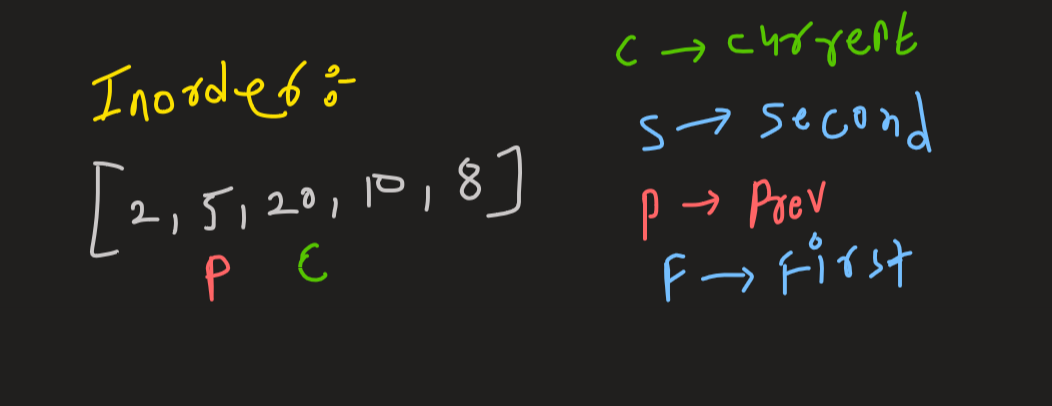 Inorder :-
[2, 5, 20, 10, 8]
P C
C → current
S → Second
P → Prev
F → First